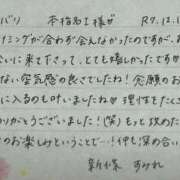 バリ 本指名T様♡ R7.12.1
イミングが合わず会えなかったのですが、お
いに来て下さって、とても嬉しかったです♡
ない空気感の良さでしたね！念願のお
に入るのも叶いましたね♡ 理性もたくさ
りがとうございました！(笑)もっと攻めた
のお楽しみということで…！(何も深の合い
新條 すみれ